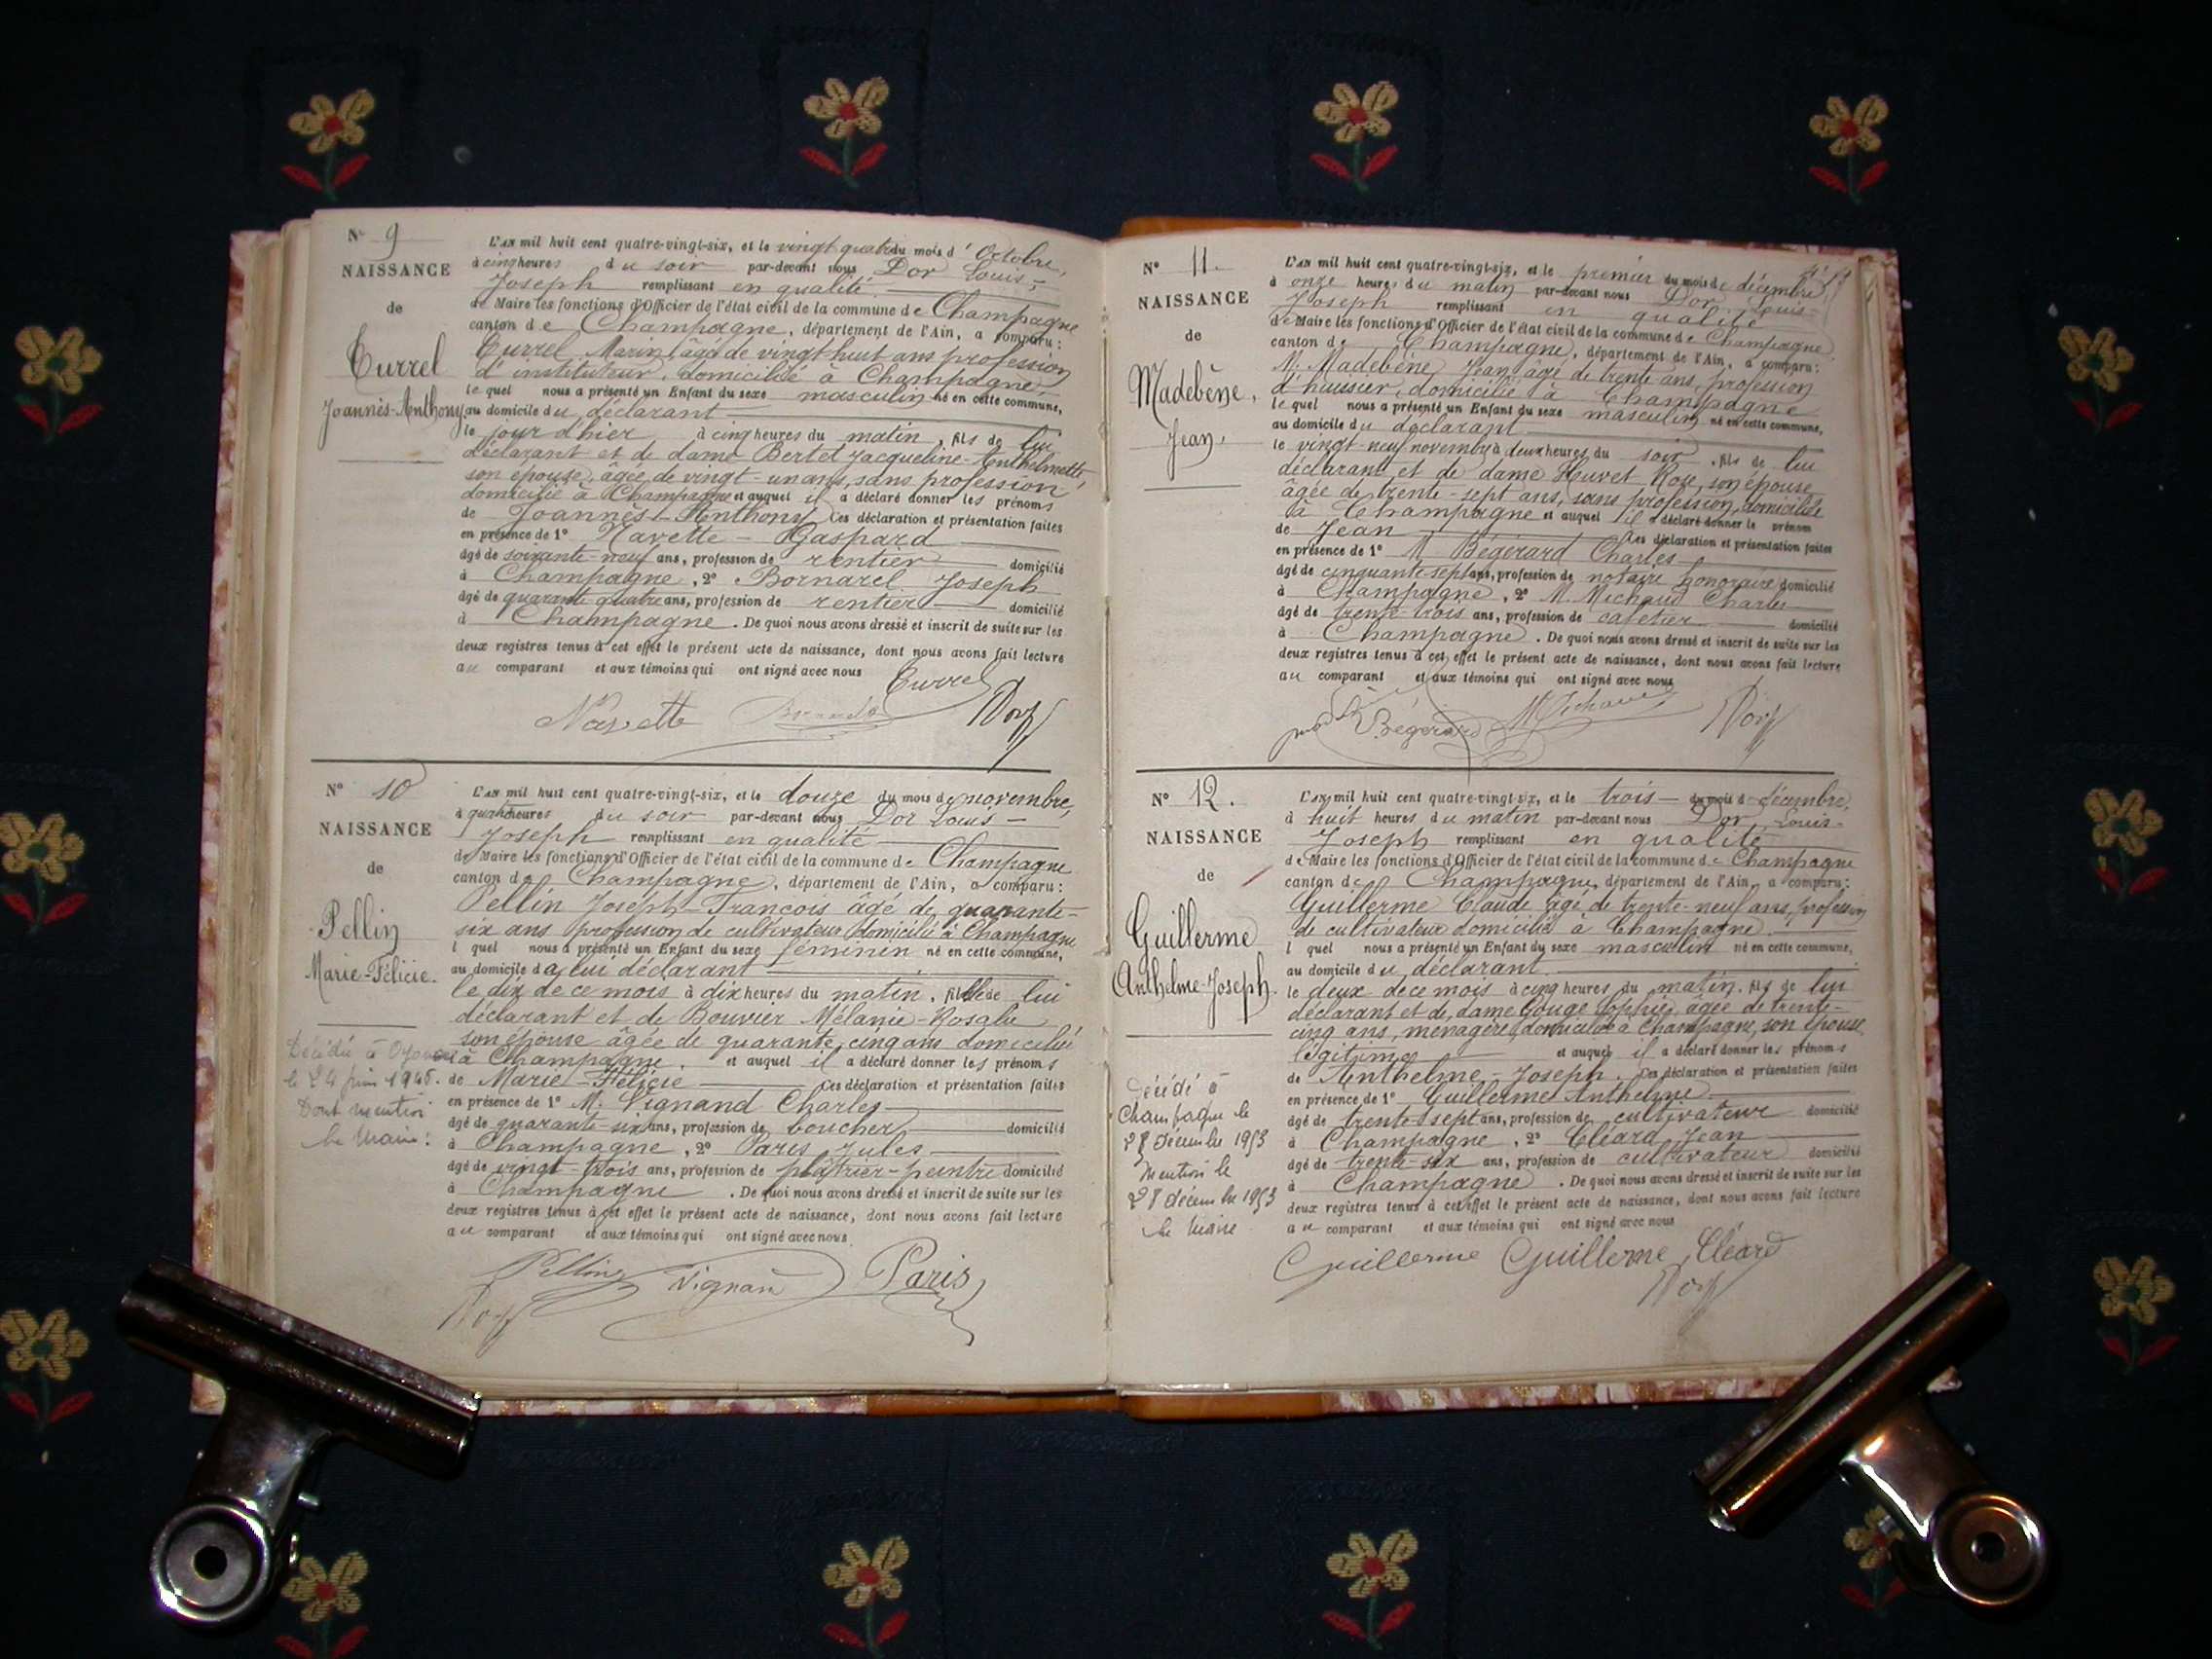 N° 9
NAISSANCE
de
Turrel
Joannès-Anthony
L'AN mil huit cent quatre-vingt-six, et le vingt quatre du mois d'Octobre,
à cinq heures du soir par-devant nous Dor Louis-
Joseph remplissant en qualité
de Maire les fonctions d'Officier de l'état civil de la commune de Champagne
canton de Champagne, département de l'Ain, a comparu:
Turrel Marin, âgé de vingt-huit ans profession
d'instituteur, domicilié à Champagne
le quel nous a présenté un Enfant du sexe masculin né en cette commune,
au domicile du déclarant
le jour d'hier à cinq heures du matin, fils de lui
déclarant et de dame Bertet Jacqueline-Anthelmette,
son épouse, âgée de vingt-un ans, sans profession
domiciliée à Champagne et auquel il a déclaré donner les prénoms
de Joannès-Anthony Ces déclaration et présentation faites
en présence de 1° Navette - Gaspard
âgé de soixante-neuf ans, profession de rentier domicilié
à Champagne, 2° Bornarel Joseph
âgé de quarante quatre ans, profession de rentier domicilié
à Champagne. De quoi nous avons dressé et inscrit de suite sur les
deux registres tenus à cet effet le présent acte de naissance, dont nous avons fait lecture
au comparant et aux témoins qui ont signé avec nous
Turrel
Navette Dor
N° 10
NAISSANCE
de
Pellin
Marie-Félicie.
Décédée à
le 24 juin 1946.
Dont mention
Le Maire:
L'AN mil huit cent quatre-vingt-six, et le douze du mois de novembre,
à quatre heures du soir par-devant nous Dor Louis-
Joseph remplissant en qualité
de Maire les fonctions d'Officier de l'état civil de la commune de Champagne
canton de Champagne, département de l'Ain, a comparu:
Pellin Joseph-François âgé de quarante-
six ans profession de cultivateur domicilié à Champagne
l quel nous a présenté un Enfant du sexe féminin né en cette commune,
au domicile de lui déclarant
le dix de ce mois à dix heures du matin, fille de lui
déclarant et de Bouvier Mélanie-Rosalie
son épouse âgée de quarante cinq ans domiciliée
à Champagne. et auquel il a déclaré donner les prénoms
de Marie-Félicie Ces déclaration et présentation faites
en présence de 1° M. Vignand Charles
âgé de quarante-six ans, profession de boucher domicilié
à Champagne, 2° Paris Jules
âgé de vingt-trois ans, profession de plâtrier-peintre domicilié
à Champagne. De quoi nous avons dressé et inscrit de suite sur les
deux registres tenus à cet effet le présent acte de naissance, dont nous avons fait lecture
au comparant et aux témoins qui ont signé avec nous
Pellin Vignan Paris
Dor
N° 11.
NAISSANCE
de
Madebène,
Jean,
L'AN mil huit cent quatre-vingt-six, et le premier du mois de décembre
à onze heures du matin par-devant nous Dor Louis-
Joseph remplissant en qualité
de Maire les fonctions d'Officier de l'état civil de la commune de Champagne
canton de Champagne, département de l'Ain, a comparu:
M. Madebène Jean âgé de trente ans, profession
d'huissier, domicilié à Champagne
le quel nous a présenté un Enfant du sexe masculin né en cette commune,
au domicile du déclarant
le vingt-neuf novembre à deux heures du soir, fils de lui
déclarant et de dame Huvet Rose, son épouse
âgée de trente-sept ans, sans profession, domiciliée
à Champagne et auquel il a déclaré donner le prénom
de Jean Les déclaration et présentation faites
en présence de 1° M. Bégérard Charles
âgé de cinquante-sept ans, profession de notaire honoraire domicilié
à Champagne, 2° M. Michaud Charles
âgé de trente-trois ans, profession de cafetier domicilié
à Champagne. De quoi nous avons dressé et inscrit de suite sur les
deux registres tenus à cet effet le présent acte de naissance, dont nous avons fait lecture
au comparant et aux témoins qui ont signé avec nous
Bégérard Michaud Dor
N° 12.
NAISSANCE
de
Guillerme
Anthelme-Joseph.
Décédé à
Champagne le
27 décembre 1953
Mention le
28 décembre 1953
Le Maire
L'AN mil huit cent quatre-vingt-six, et le trois du mois de décembre,
à huit heures du matin par-devant nous Dor, Louis-
Joseph remplissant en qualité
de Maire les fonctions d'Officier de l'état civil de la commune de Champagne
canton de Champagne, département de l'Ain, a comparu:
Guillerme Claude âgé de trente-neuf ans, profession
de cultivateur domicilié à Champagne.
l quel nous a présenté un Enfant du sexe masculin né en cette commune,
au domicile du déclarant.
le deux de ce mois à cinq heures du matin, fils de lui
déclarant et de dame Gouge Sophie, âgée de trente-
cinq ans, ménagère, domiciliée à Champagne, son épouse
légitime et auquel il a déclaré donner les prénoms
de Anthelme-Joseph. Ces déclaration et présentation faites
en présence de 1° Guillerme Anthelme
âgé de trente-sept ans, profession de cultivateur domicilié
à Champagne, 2° Cléard Jean
âgé de trente-six ans, profession de cultivateur domicilié
à Champagne. De quoi nous avons dressé et inscrit de suite sur les
deux registres tenus à cet effet le présent acte de naissance, dont nous avons fait lecture
au comparant et aux témoins qui ont signé avec nous
Guillerme Guillerme Cléard
Dor